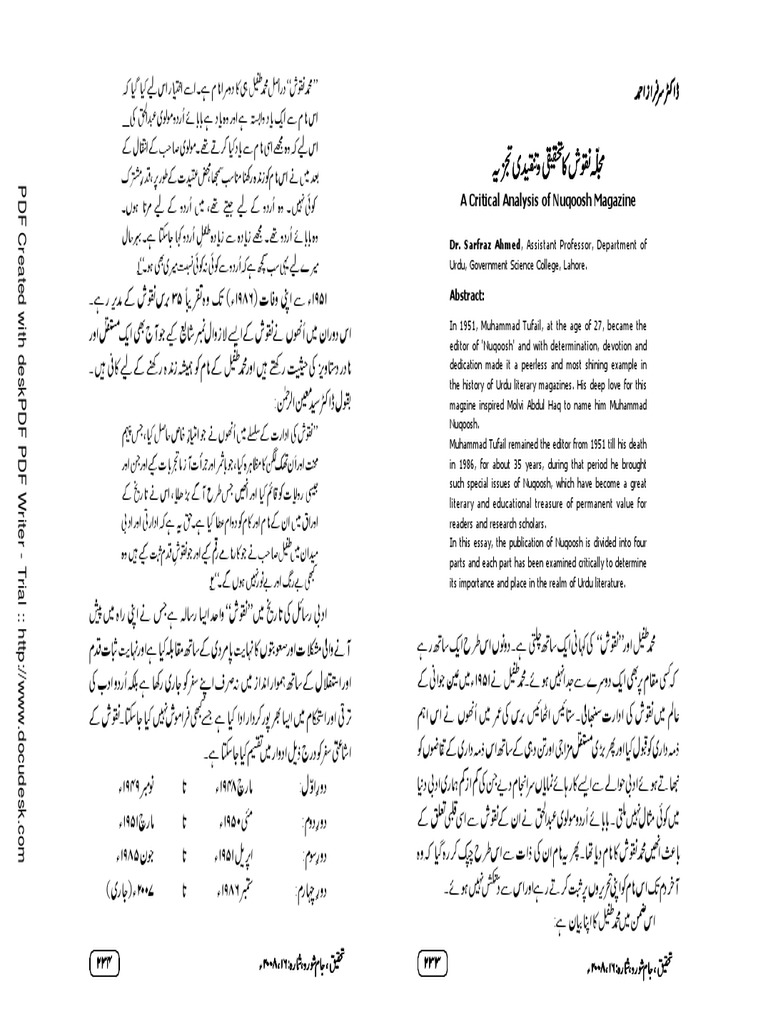 ڈاکٹر سرفراز احمد
مجلّہ نقوش کا تحقیقی و تنقیدی تجزیہ
A Critical Analysis of Nuqoosh Magazine
Dr. Sarfraz Ahmed, Assistant Professor, Department of
Urdu, Government Science College, Lahore.
Abstract:
In 1951, Muhammad Tufail, at the age of 27, became the
editor of 'Nuqoosh' and with determination, devotion and
dedication made it a peerless and most shining example in
the history of Urdu literary magazines. His deep love for this
magzine inspired Molvi Abdul Haq to name him Muhammad
Nuqoosh.
Muhammad Tufail remained the editor from 1951 till his death
in 1986, for about 35 years, during that period he brought
such special issues of Nuqoosh, which have become a great
literary and educational treasure of permanent value for
readers and research scholars.
In this essay, the publication of Nuqoosh is divided into four
parts and each part has been examined critically to determine
its importance and place in the realm of Urdu literature.
محمد طفیل اور ”نقوش“ کی کہانی ایک ساتھ چلتی ہے۔ دونوں اس طرح ایک ساتھ رہے
کہ کسی مقام پر بھی ایک دوسرے سے جدا نہیں ہوئے۔ محمد طفیل نے ۱۹۵۱ء میں عین جوانی کے
عالم میں نقوش کی ادارت سنبھالی۔ ستائیس اٹھائیس برس کی عمر میں انھوں نے اس اہم
ذمہ داری کو قبول کیا اور پھر بڑی مستقل مزاجی اور تن دہی کے ساتھ اس ذمہ داری کے تقاضوں کو
نبھاتے ہوئے ادبی حوالے سے ایسے کارہائے نمایاں سرانجام دیے جن کی کم از کم ہماری ادبی دنیا
میں کوئی مثال نہیں ملتی۔ بابائے اُردو مولوی عبدالحق نے ان کے نقوش سے اسی قلبی تعلق کے
باعث انھیں محمد نقوش کا نام دیا تھا۔ پھر یہ نام ان کی ذات سے اس طرح چپک کر رہ گیا کہ وہ
آخر دم تک اس نام کو اپنی تحریروں پر ثبت کرتے رہے اور اس سے دستکش نہیں ہوئے۔
اس ضمن میں محمد طفیل کا اپنا بیان ہے:
تحقیق، جام شورو، شمارہ: ۱۶، ۲۰۰۸ء
۲۳۳
”محمد نقوش“ دراصل محمد طفیل ہی کا دوسرا نام ہے۔ اسے اختیار اس لیے کیا گیا کہ
اس نام سے ایک یاد وابستہ ہے اور وہ یاد ہے بابائے اُردو مولوی عبدالحق کی
اس لیے کہ وہ مجھے اسی نام سے یاد کیا کرتے تھے۔ مولوی صاحب کے انتقال کے
بعد میں نے اس نام کو زندہ رکھنا مناسب سمجھا، محض عقیدت کے طور پر، قدرِ مشترک
کوئی نہیں۔ وہ اُردو کے لیے جیتے تھے، میں اُردو کے لیے مرتا ہوں۔
وہ بابائے اُردو تھے۔ مجھے زیادہ سے زیادہ طفلِ اُردو کہا جا سکتا ہے۔ بہر حال
میرے لیے یہی سب کچھ ہے کہ اُردو سے کوئی نہ کوئی نسبت میری بھی ہو۔“۱؎
۱۹۵۱ء سے اپنی وفات (۱۹۸۶ء) تک وہ تقریباً ۳۵ برس نقوش کے مدیر رہے۔
اس دوران میں اُنھوں نے نقوش کے ایسے لازوال نمبر شائع کیے جو آج بھی ایک مستقل اور
نادر دستاویز کی حیثیت رکھتے ہیں اور محمد طفیل کے نام کو ہمیشہ زندہ رکھنے کے لیے کافی ہیں۔
بقول ڈاکٹر سید معین الرحمٰن:
”نقوش کی ادارت کے سلسلے میں انھوں نے جو امتیاز خاص حاصل کیا، جس پیہم
محنت اور اَن تھک لگن کا مظاہرہ کیا، جو باثمر اور جرأت آزما تجربات کیے اور جن اور
جیسی روایات کو قائم کیا اور انھیں جس طرح آگے بڑھایا، اس نے تاریخ کے
اوراق میں ان کے نام اور کام کو دوام عطا کیا ہے۔ حق یہ ہے کہ ادارتی اور ادبی
میدان میں طفیل صاحب نے جو کارنامے رقم کیے اور جو نقوشِ قدم ثبت کیے ہیں وہ
کبھی بے رنگ اور بے نور نہیں ہوں گے۔“۲؎
ادبی رسائل کی تاریخ میں ”نقوش“ واحد ایسا رسالہ ہے جس نے اپنی راہ میں پیش
آنے والی مشکلات اور صعوبتوں کا نہایت پامردی کے ساتھ مقابلہ کیا ہے اور نہایت ثبات قدم
اور استقلال کے ساتھ ہموار انداز میں نہ صرف اپنے سفر کو جاری رکھا ہے بلکہ اُردو ادب کی
ترقی اور استحکام میں ایسا بھرپور کردار ادا کیا ہے جسے کبھی فراموش نہیں کیا جاسکتا۔ نقوش کے
اشاعتی سفر کو درج ذیل ادوار میں تقسیم کیا جاسکتا ہے۔
دورِ اوّل: مارچ ۱۹۴۸ء تا نومبر ۱۹۴۹ء
دورِ دوم: مئی ۱۹۵۰ء تا مارچ ۱۹۵۱ء
دورِ سوم: اپریل ۱۹۵۱ء تا جون ۱۹۸۵ء
دورِ چہارم: ستمبر ۱۹۸۶ء تا ۲۰۰۷ء (جاری)
تحقیق، جام شورو، شمارہ: ۱۶، ۲۰۰۸ء
۲۳۴
PDF Created with deskPDF PDF Writer - Trial :: http://www.docudesk.com